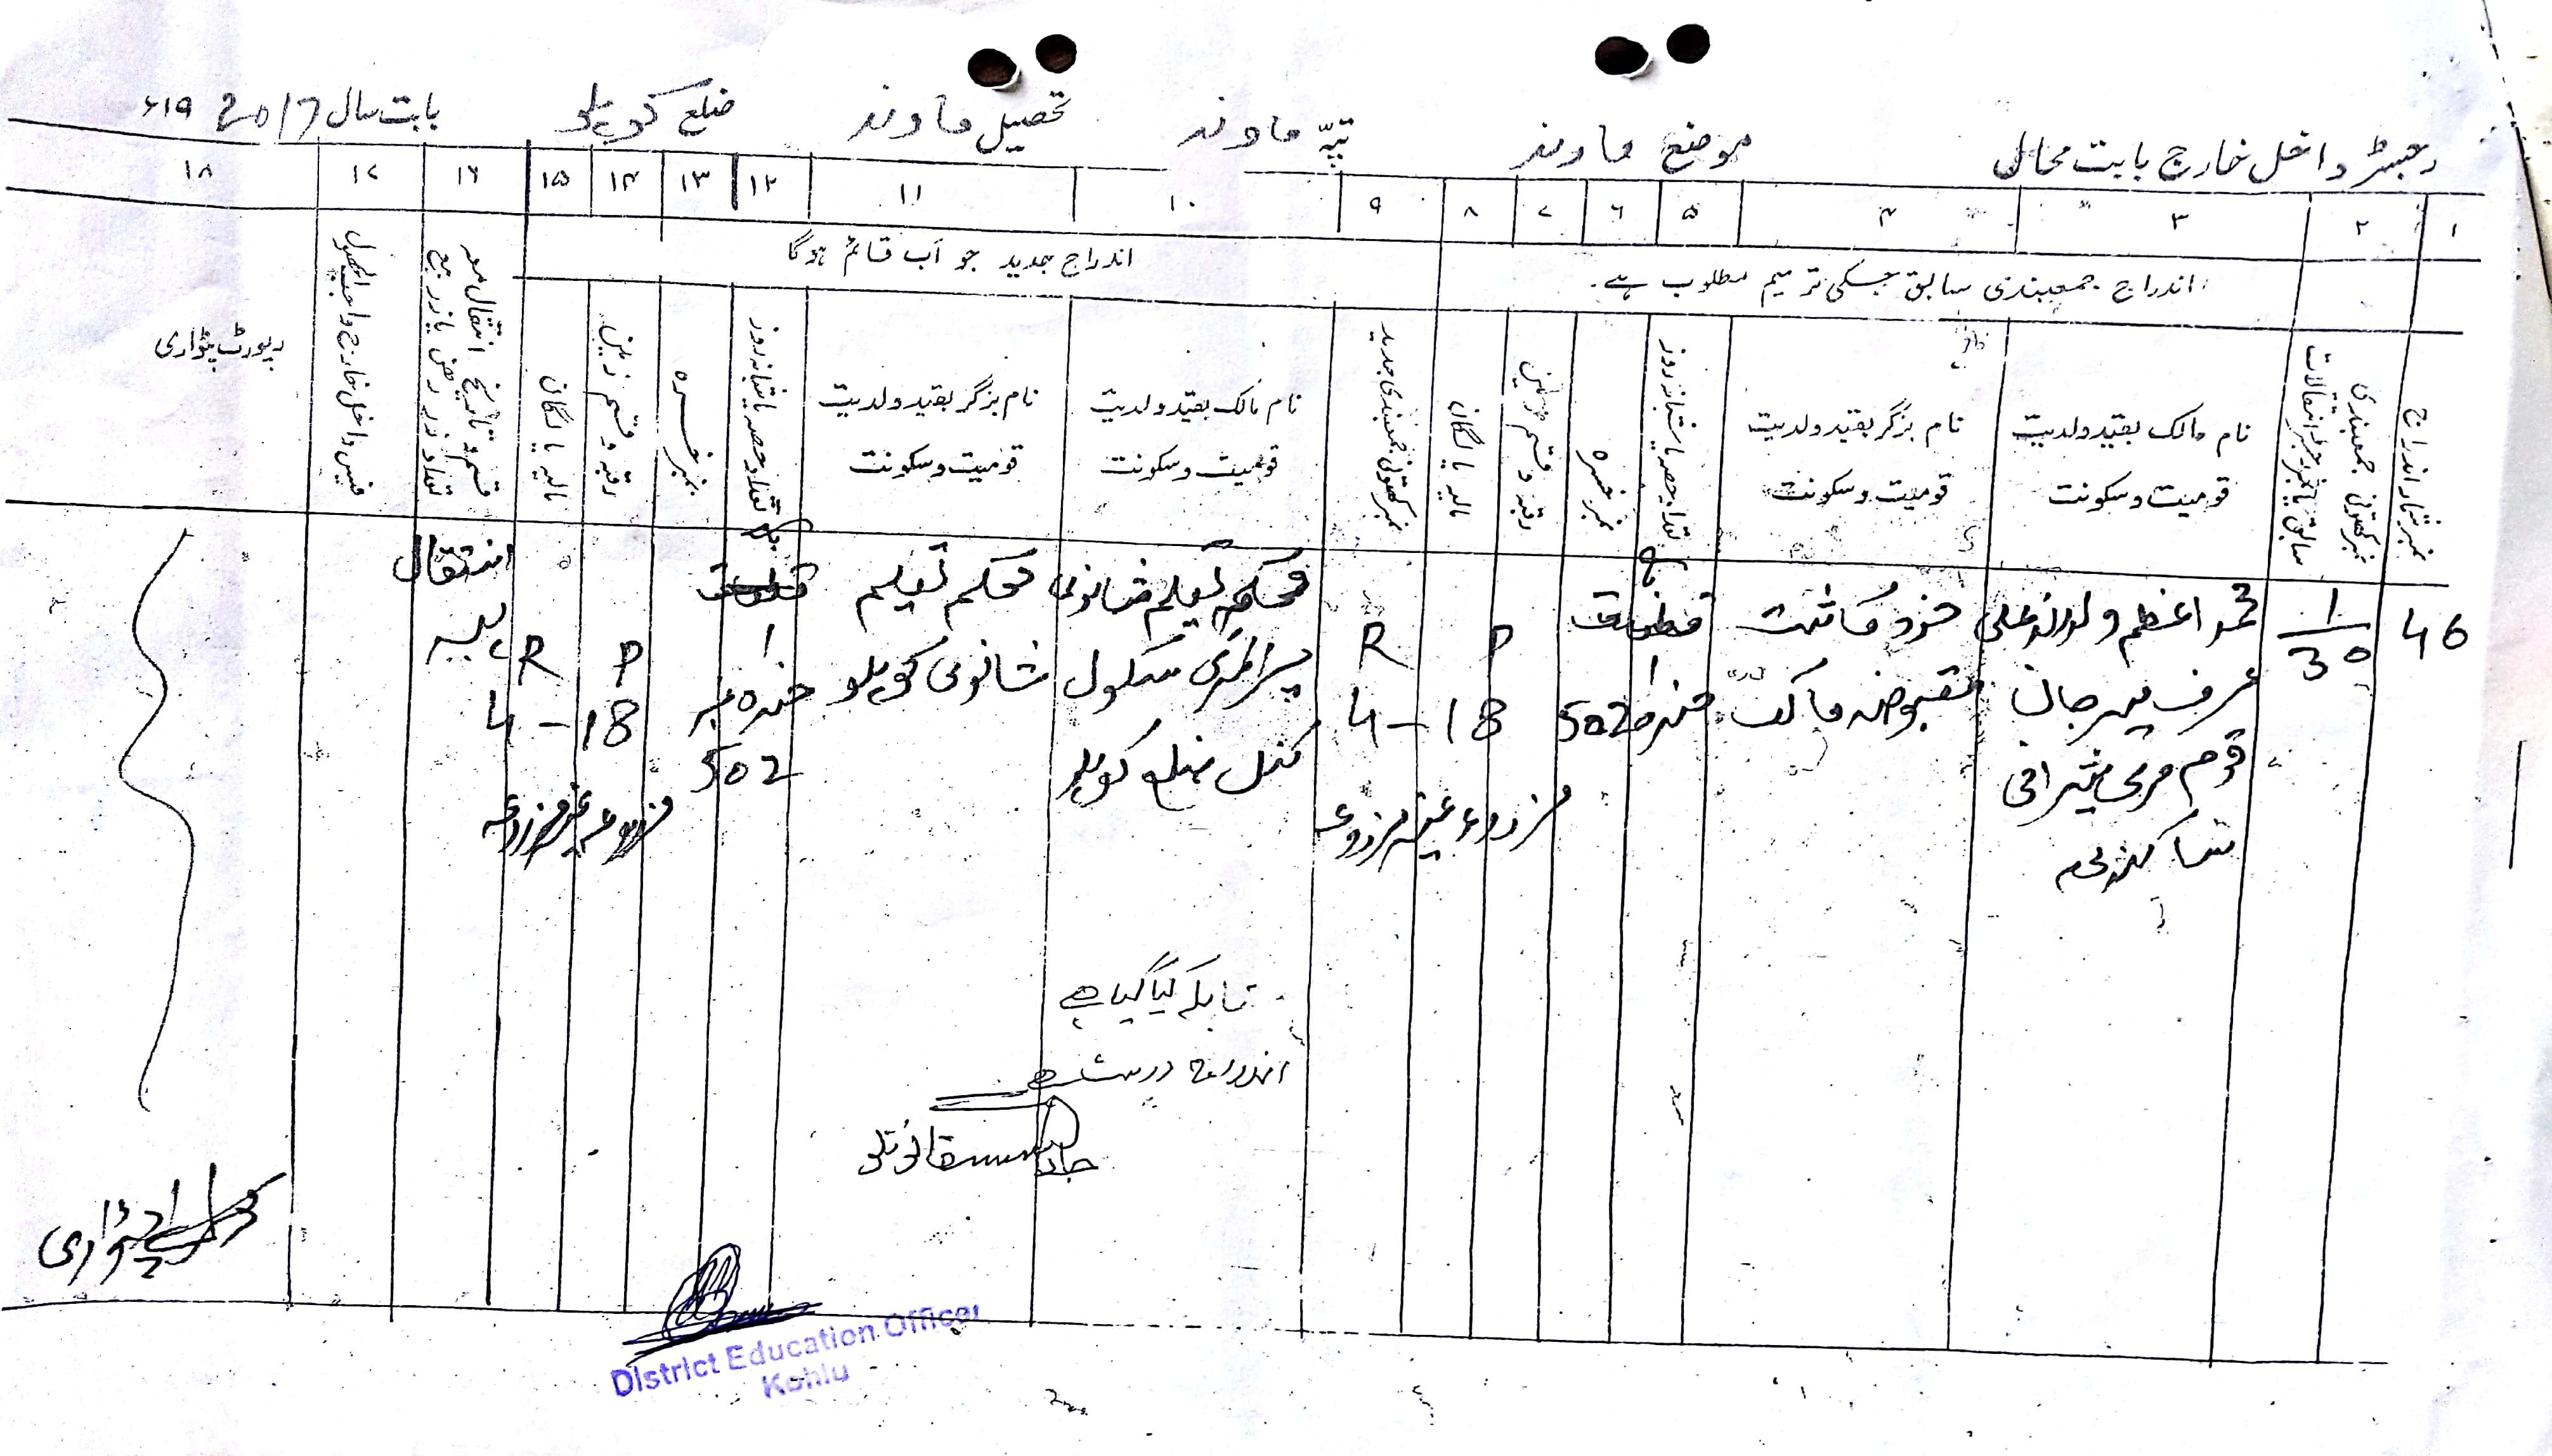 رجسٹر داخل خارج بابت محال موضع ماوند تپّہ ماوند تحصیل ماوند ضلع کوہلو بابت سال 2017 ۱۹ء
۱ ۲ ۳ ۴ ۵ ۶ ۷ ۸ ۹ ۱۰ ۱۱ ۱۲ ۱۳ ۱۴ ۱۵ ۱۶ ۱۷ ۱۸
اندراج جمعبندی سابق جسکی ترمیم مطلوب ہے۔
اندراج جدید جو اب قائم ہوگا
نمبر شمار اندراج
نمبر کھتونی جمعبندی
سابق یا نمبر رجسٹر انتقالات
نام مالک بقید ولدیت
قومیت و سکونت
نام بزگر بقید ولدیت
قومیت و سکونت
تعداد حصہ یا شبانہ روز
نمبر خسرہ
رقبہ و قسم زمین
مالیہ یا لگان
نمبر کھتونی جمعبندی جدید
نام مالک بقید ولدیت
قومیت و سکونت
نام بزگر بقید ولدیت
قومیت و سکونت
تعداد حصہ یا شبانہ روز
نمبر خسرہ
رقبہ و قسم زمین
مالیہ یا لگان
قسم و تاریخ انتقال معہ
تعداد زر رہن یا زر بیع
فیس داخل خارج واجب الوصول
رپورٹ پٹواری
46
1
30
محمد اعظم ولد
عرف پیر جان
قوم مری
خود کاشت
مقبوضہ مالک
قطعات
1
خسرہ 502
P R
4-18
مزروعہ غیر مزروعہ
محکمہ تعلیم ثانوی
پرائمری سکول
ضلع کوہلو
محکمہ تعلیم
ثانوی کوہلو
1
خسرہ نمبر
502
P R
4-18
مزروعہ غیر مزروعہ
انتقال
ہبہ
کیا گیا ہے
اندراج درست ہے
قانونگو
پٹواری
District Education Officer
Kohlu